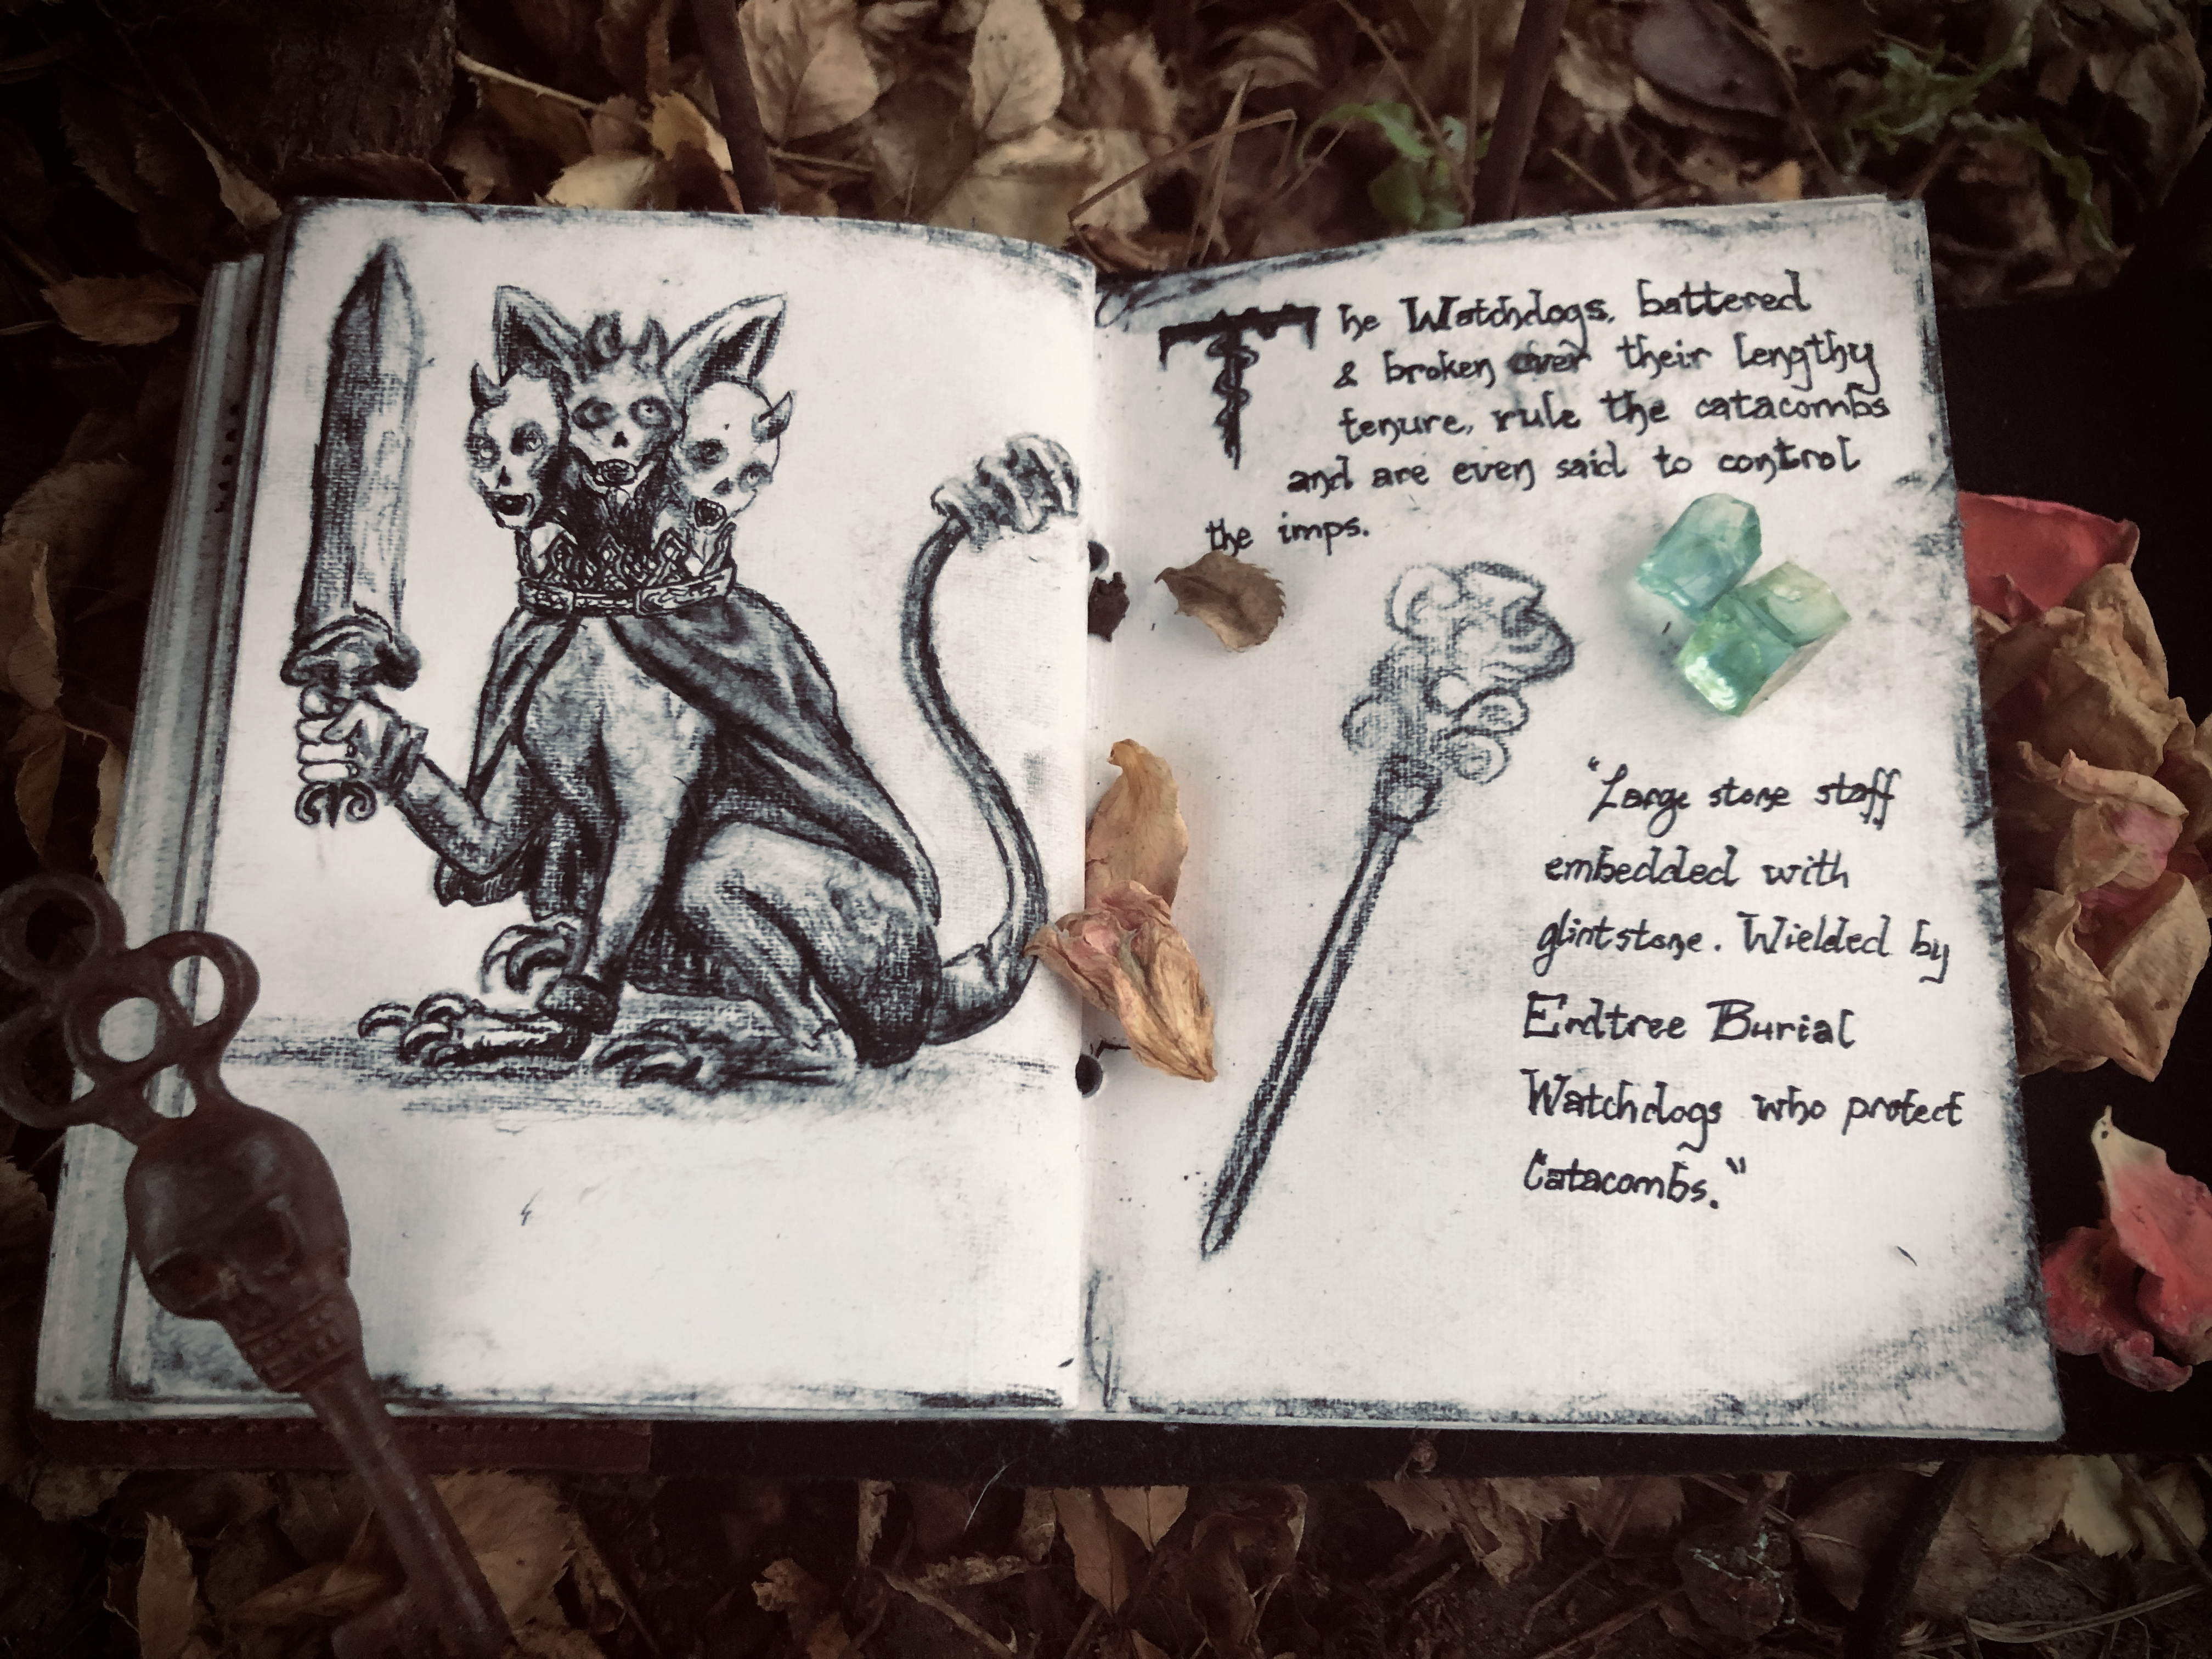 The Watchdogs, battered
& broken over their lengthy
tenure, rule the catacombs
and are even said to control
the imps.
"Large stone staff
embedded with
glintstone. Wielded by
Erdtree Burial
Watchdogs who protect
Catacombs."